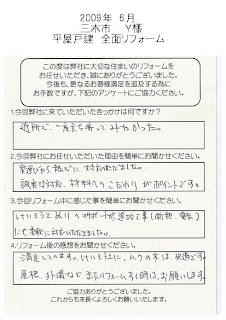 2009年 6月
三木市 Y様
平屋戸建 全面リフォーム
この度は弊社に大切な住まいのリフォームを
お任せいただき、誠にありがとうございました。
今後も、更なるお客様満足を追及する為に
お手数ですが、下記のアンケートにご協力ください。
1.今回弊社に来ていただいたきっかけは何ですか?
近所で、
2.今回弊社にお任せいただいた理由を簡単にお聞かせください。
対応いただきました。
こだわりがポイントです。
3.今回リフォーム中に感じた事を簡単にお聞かせください。
けいそうとぬりへのサポート
にも柔軟に対応いただきました。
4.リフォーム後の感想をお聞かせください。
満足してます。けいそうとに、ムクの木は、快適です。
屋根、外溝など またリフォームする時は、お願いします。
ご協力ありがとうございました。
これからも末長くよろしくお願いいたします。